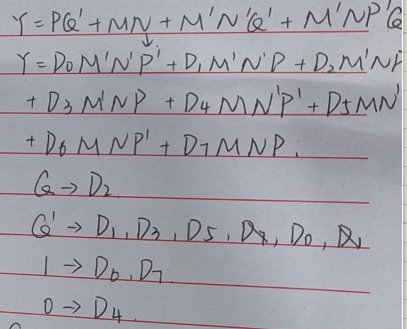 Y = PQ' + MN + M'N'Q' + M'NP'Q
Y = D0 M'N'P' + D1 M'N'P + D2 M'NP
+ D3 M'NP + D4 MN'P' + D5 MN'
+ D6 MNP' + D7 MNP.
Q → D2
Q' → D1, D3, D5, D0,
1 → D6, D7
0 → D4